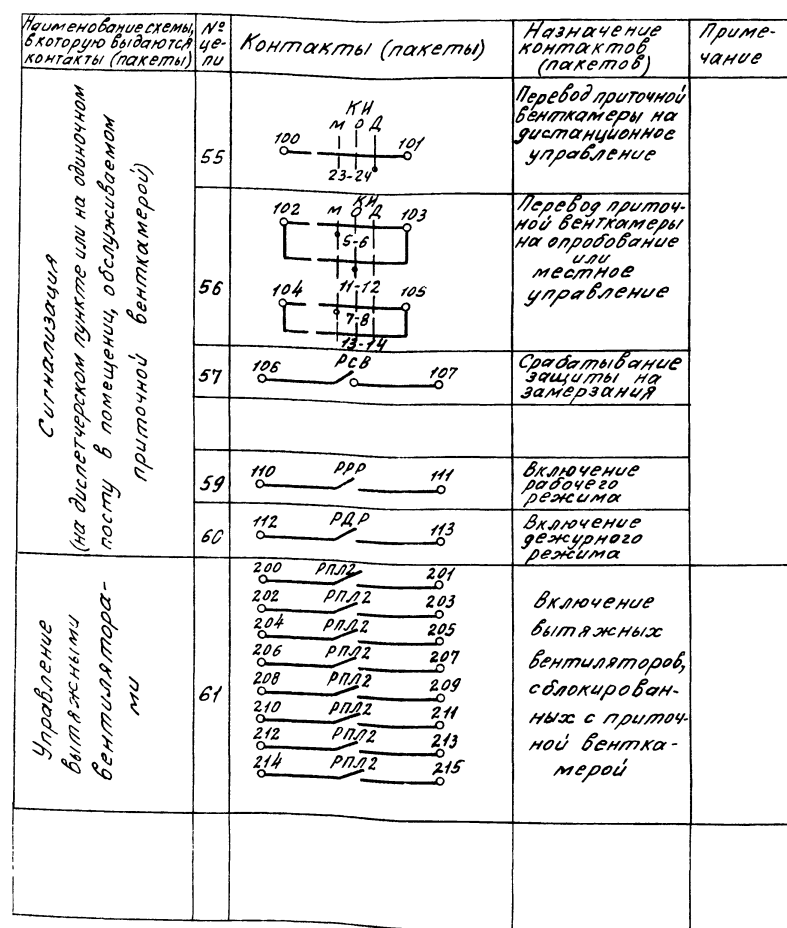 Наименование схемы,
в которую выдаются
контакты (пакеты)
№
це-
пи
Контакты (пакеты)
Назначение
контактов
(пакетов)
Приме-
чание
Сигнализация
(на диспетчерском пункте или на одиночном
посту в помещении, обслуживаемом
приточной венткамерой)
55
КИ
М О Д
100 101
23-24
Перевод приточной
венткамеры на
дистанционное
управление
56
КИ
М О Д
102 103
5-6
11-12
104 105
7-8
13-14
Перевод приточ-
ной венткамеры
на опробование
или
местное
управление
57
106 РСВ 107
Срабатывание
защиты на
замерзания
59
110 РРР 111
Включение
рабочего
режима
60
112 РДР 113
Включение
дежурного
режима
Управление
вытяжными
вентилятора-
ми
61
200 РПЛ2 201
202 РПЛ2 203
204 РПЛ2 205
206 РПЛ2 207
208 РПЛ2 209
210 РПЛ2 211
212 РПЛ2 213
214 РПЛ2 215
Включение
вытяжных
вентиляторов,
сблокирован-
ных с приточ-
ной вентка-
мерой